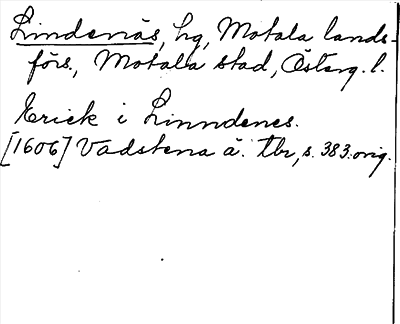 Lindenäs, hg, Motala lands-
förs., Motala stad, Österg. l.
Erick i Linndenes.
[1606] Vadstena ä. tbr, s. 383 orig.